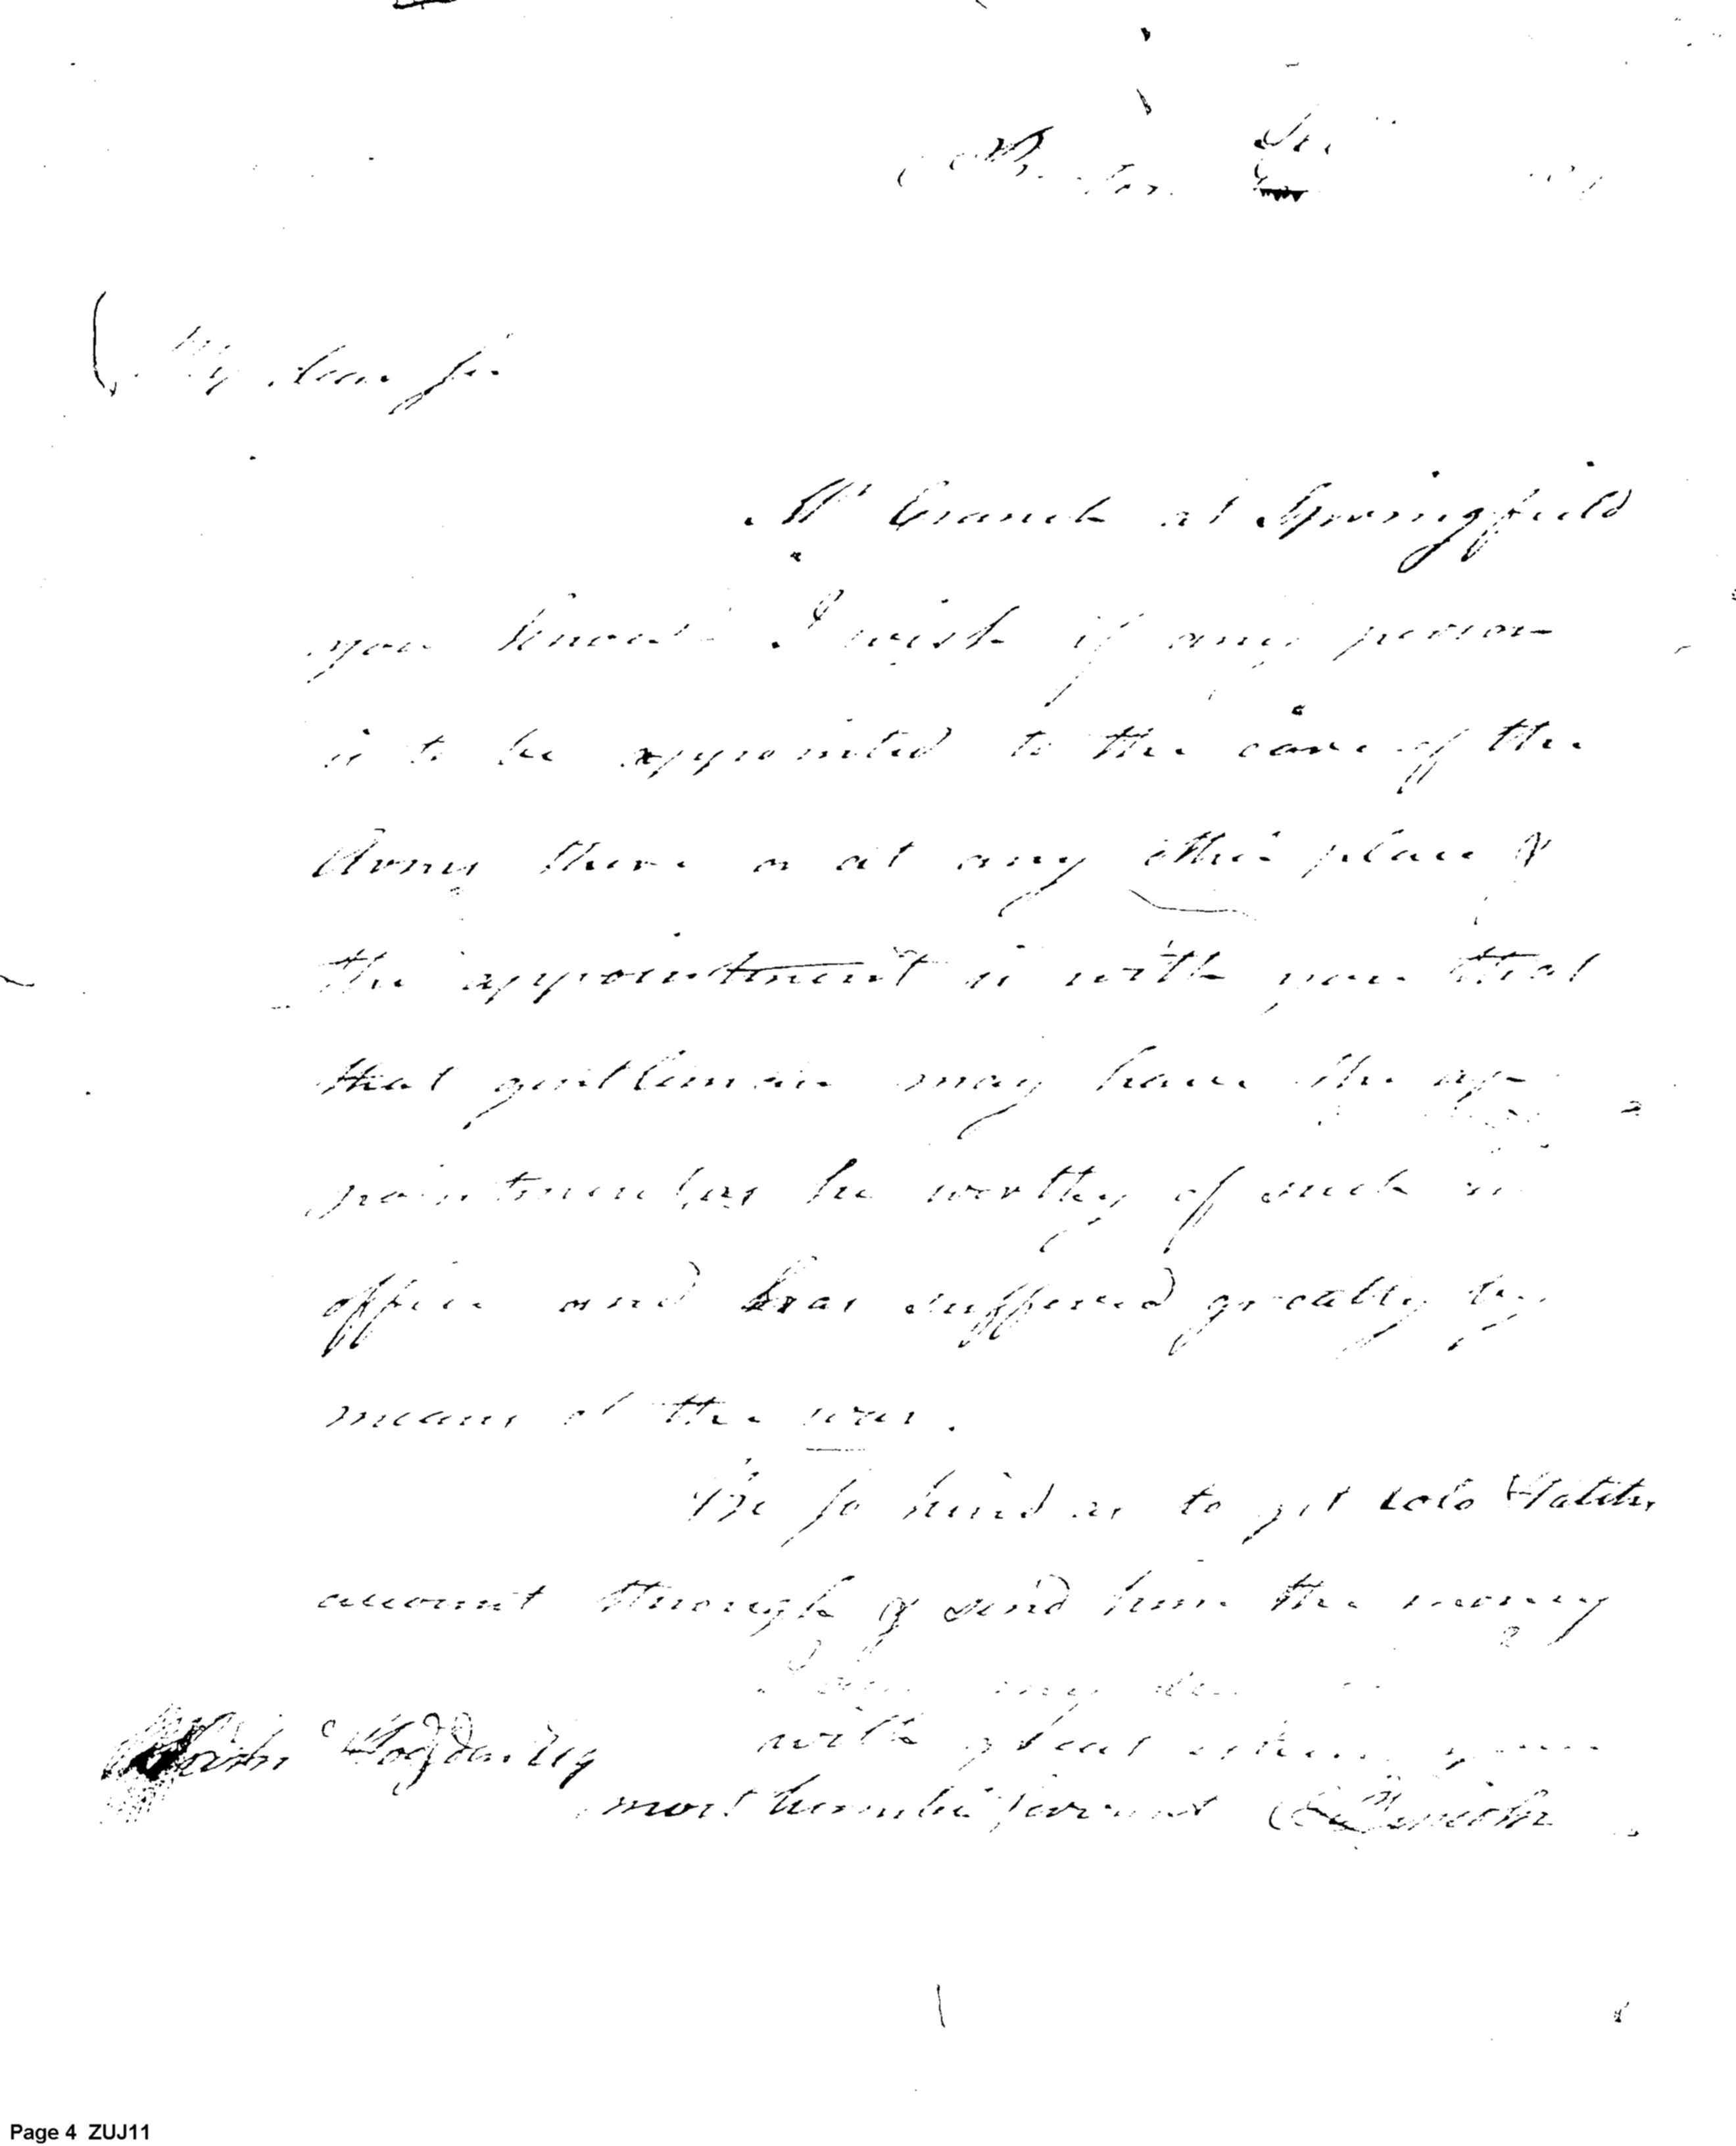 My dear Sir
Mr Cranch at Springfield
you know I wish if any person
is to be appointed to the care of the
Army there or at any other place &
the appointment is with you that
that gentleman may have the ap-
pointment as he worthy of such
office and has suffered greatly by
means of the war.
Be so kind as to get Colo Hatch
account through & send him the money
I am my dear
with great esteem your
Hodgdon Esq
most humble servant B Lincoln
Page 4 ZUJ11